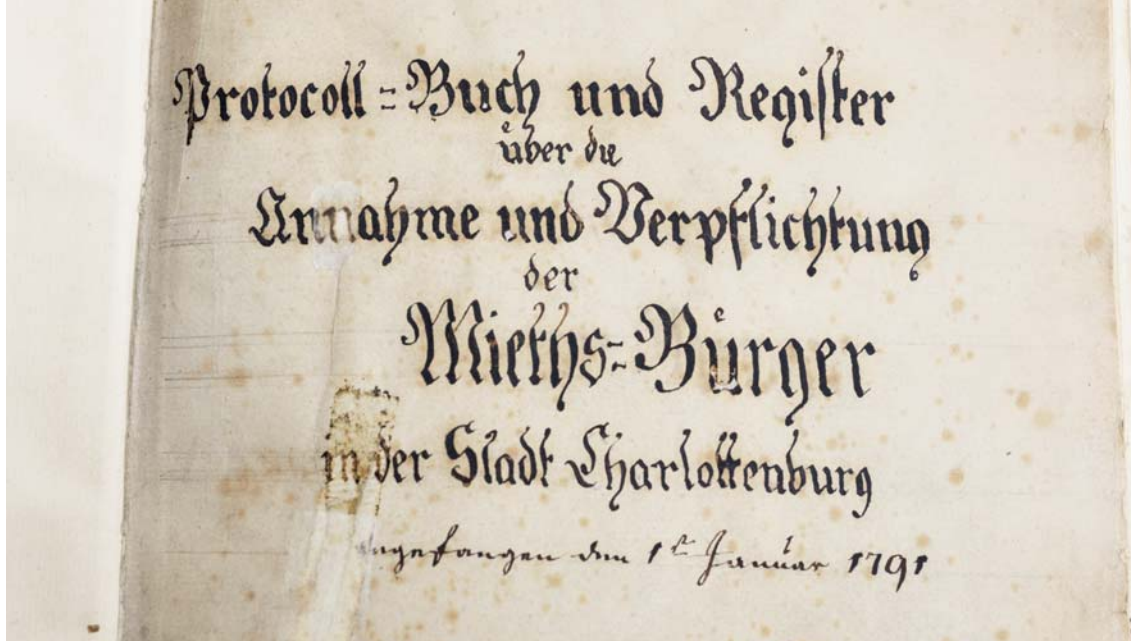 Protocoll=Buch und Register
über die
Annahme und Verpflichtung
der
Mieths=Bürger
in der Stadt Charlottenburg
angefangen den 1t Januar 1791